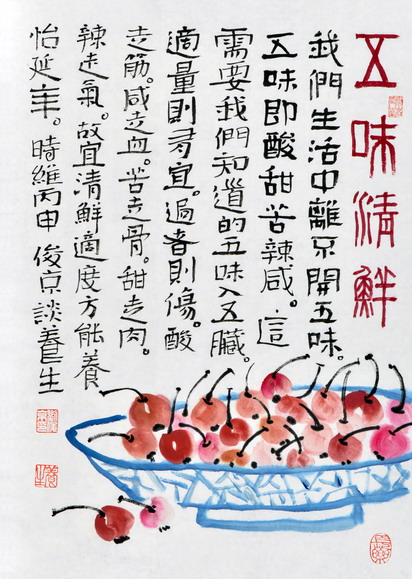 五味清鮮
我們生活中離不開五味。
五味即酸甜苦辣咸。這
需要我們知道的五味入五臟。
適量則有宜。過者則傷。酸
走筋。咸走血。苦走骨。甜走肉。
辣走氣。故宜清鮮適度方能養
怡延年。時維丙申 俊京談養生